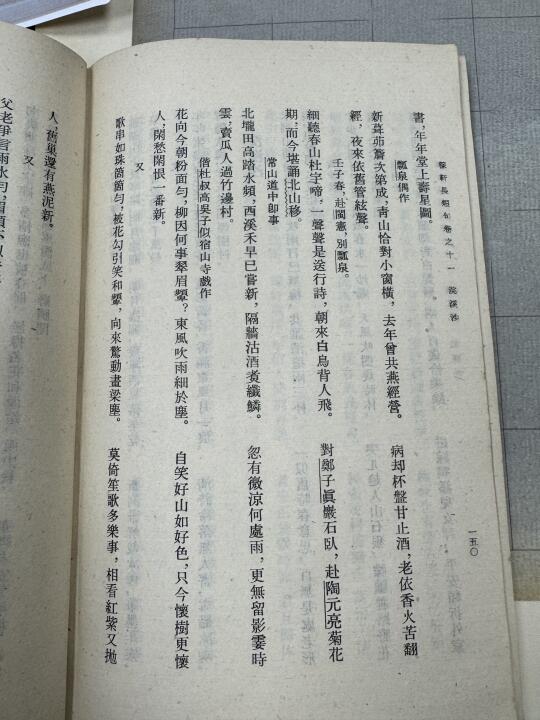 稼軒長短句卷之十一　浣溪沙
一五〇
書，年年堂上壽星圖。
瓢泉偶作
新葺茆簷次第成，青山恰對小窗橫，去年曾共燕經營。　病却杯盤甘止酒，老依香火苦翻
經，夜來依舊管絃聲。
壬子春，赴閩憲，別瓢泉。
細聽春山杜宇啼，一聲聲是送行詩，朝來白鳥背人飛。　對鄭子眞巖石臥，赴陶元亮菊花
期，而今堪誦北山移。
常山道中卽事
北壠田高踏水頻，西溪禾早已嘗新，隔牆沽酒煑纖鱗。　忽有微涼何處雨，更無留影霎時
雲，賣瓜人過竹邊村。
偕杜叔高吳子似宿山寺戲作
花向今朝粉面勻，柳因何事翠眉顰？東風吹雨細於塵。　自笑好山如好色，只今懷樹更懷
人，閑愁閑恨一番新。
又
歌串如珠箇箇勻，被花勾引笑和顰，向來驚動畫梁塵。　莫倚笙歌多樂事，相看紅紫又拋
人，舊巢還有燕泥新。
又
父老爭言雨水勻，眉頭不似